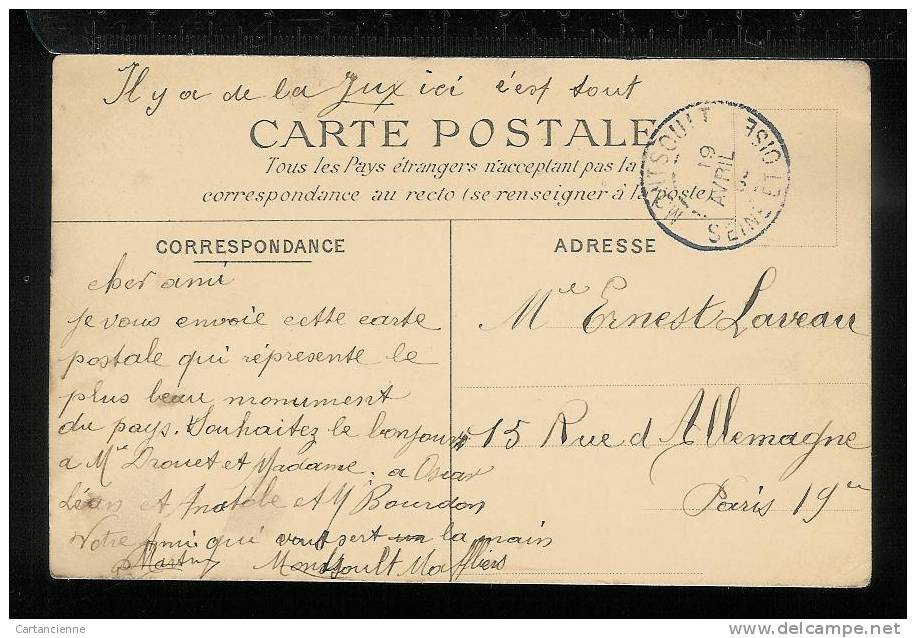 Il y a de la Jux ici c'est tout
CARTE POSTALE
Tous les Pays étrangers n'acceptant pas la
correspondance au recto (se renseigner à la poste)
MONTSOULT
19
AVRIL
SEINE ET OISE
CORRESPONDANCE
ADRESSE
cher ami
je vous envoie cette carte
postale qui répresente le
plus beau monument
du pays. Souhaitez le bonjour
a Mr Drouet et Madame. a Oscar
Léon et Anatole et M Bourdon
Votre Ami qui vous sert la main
Martin Montsoult Maffliers
Mr Ernest Laveau
15 Rue d Allemagne
Paris 19e
Cartancienne
delcampe.net